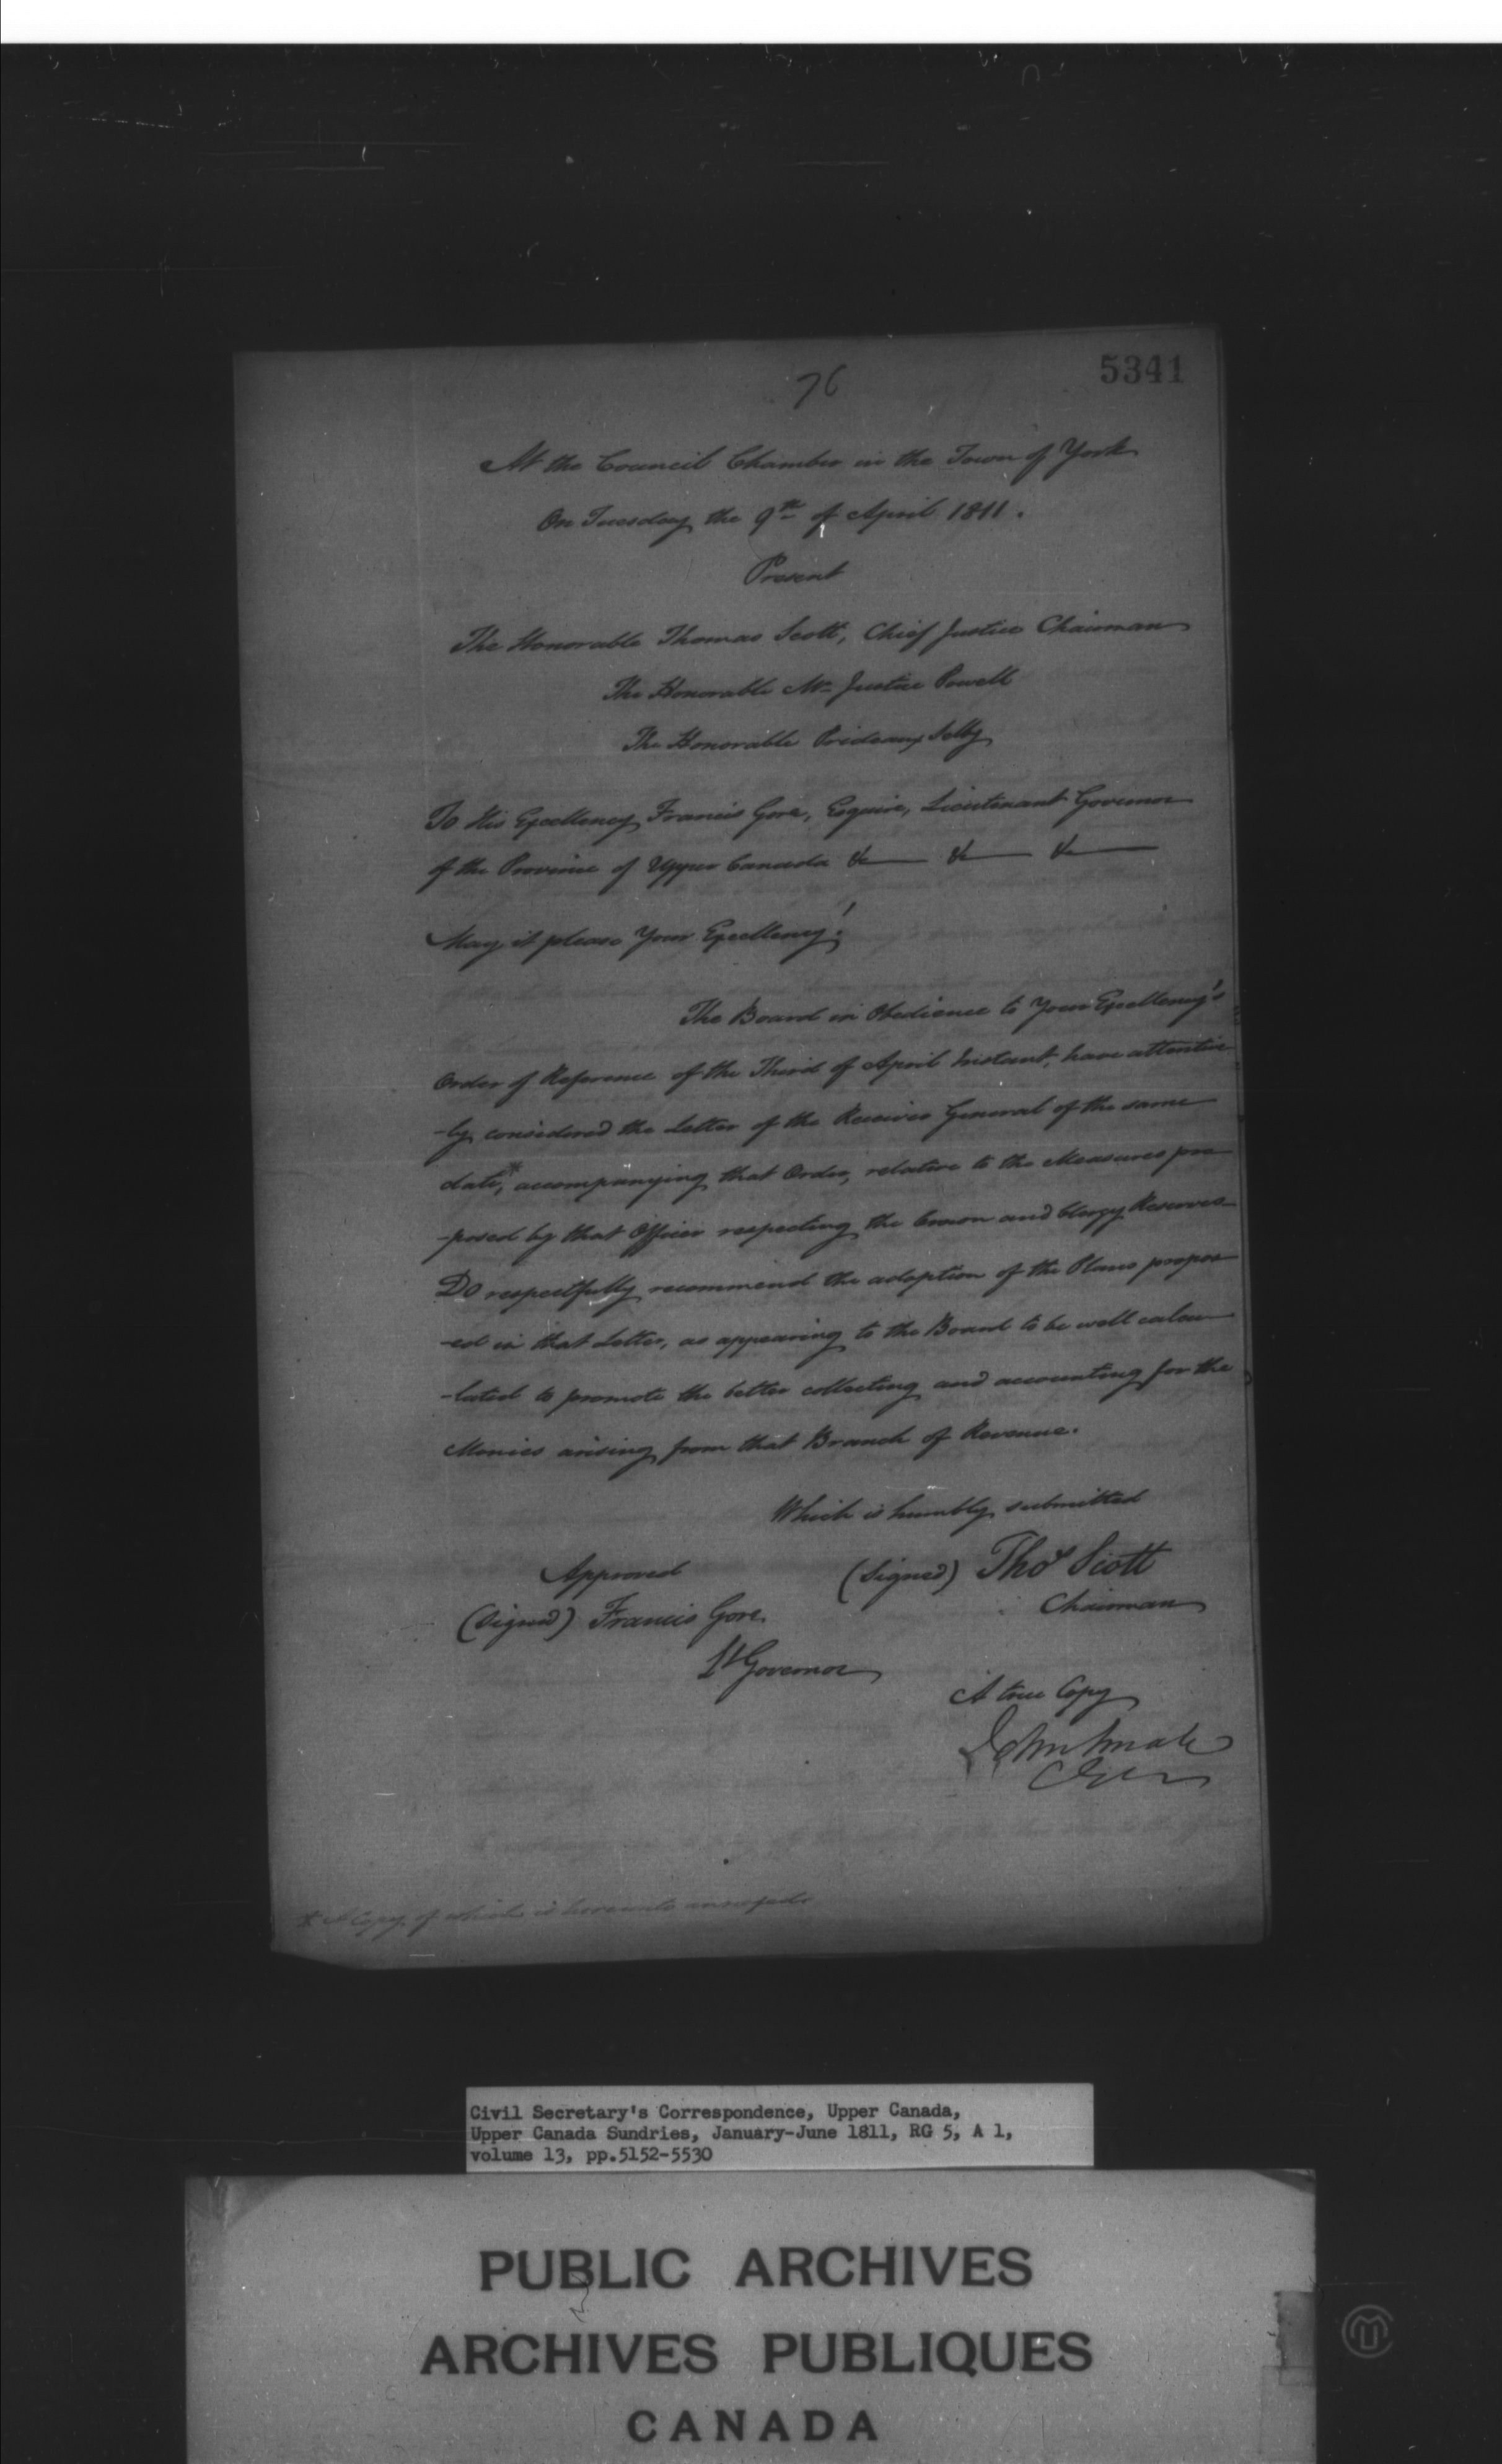 76
5341
At the Council Chamber in the Town of York
On Tuesday the 9th of April 1811.
Present
The Honorable Thomas Scott, Chief Justice Chairman
The Honorable Mr Justice Powell
The Honorable Prideaux Selby
To His Excellency Francis Gore, Esquire, Lieutenant Governor
of the Province of Upper Canada &c &c &c
May it please Your Excellency!
The Board in Obedience to Your Excellency's
Order of Reference of the Third of April Instant, have attentive
-ly considered the Letter of the Receiver General of the same
date,* accompanying that Order, relative to the Measures pro
-posed by that Officer respecting the Crown and Clergy Reserves
Do respectfully recommend the adoption of the Plans propos
-ed in that Letter, as appearing to the Board to be well calcu
-lated to promote the better collecting and accounting for the
Monies arising from that Branch of Revenue.
Which is humbly submitted
Approved
(Signed) Thos Scott
Chairman
(Signed) Francis Gore.
Lt Governor
A true Copy
John Small
* A Copy of which is hereunto annexed
Civil Secretary's Correspondence, Upper Canada,
Upper Canada Sundries, January-June 1811, RG 5, A 1,
volume 13, pp.5152-5530
PUBLIC ARCHIVES
ARCHIVES PUBLIQUES
CANADA